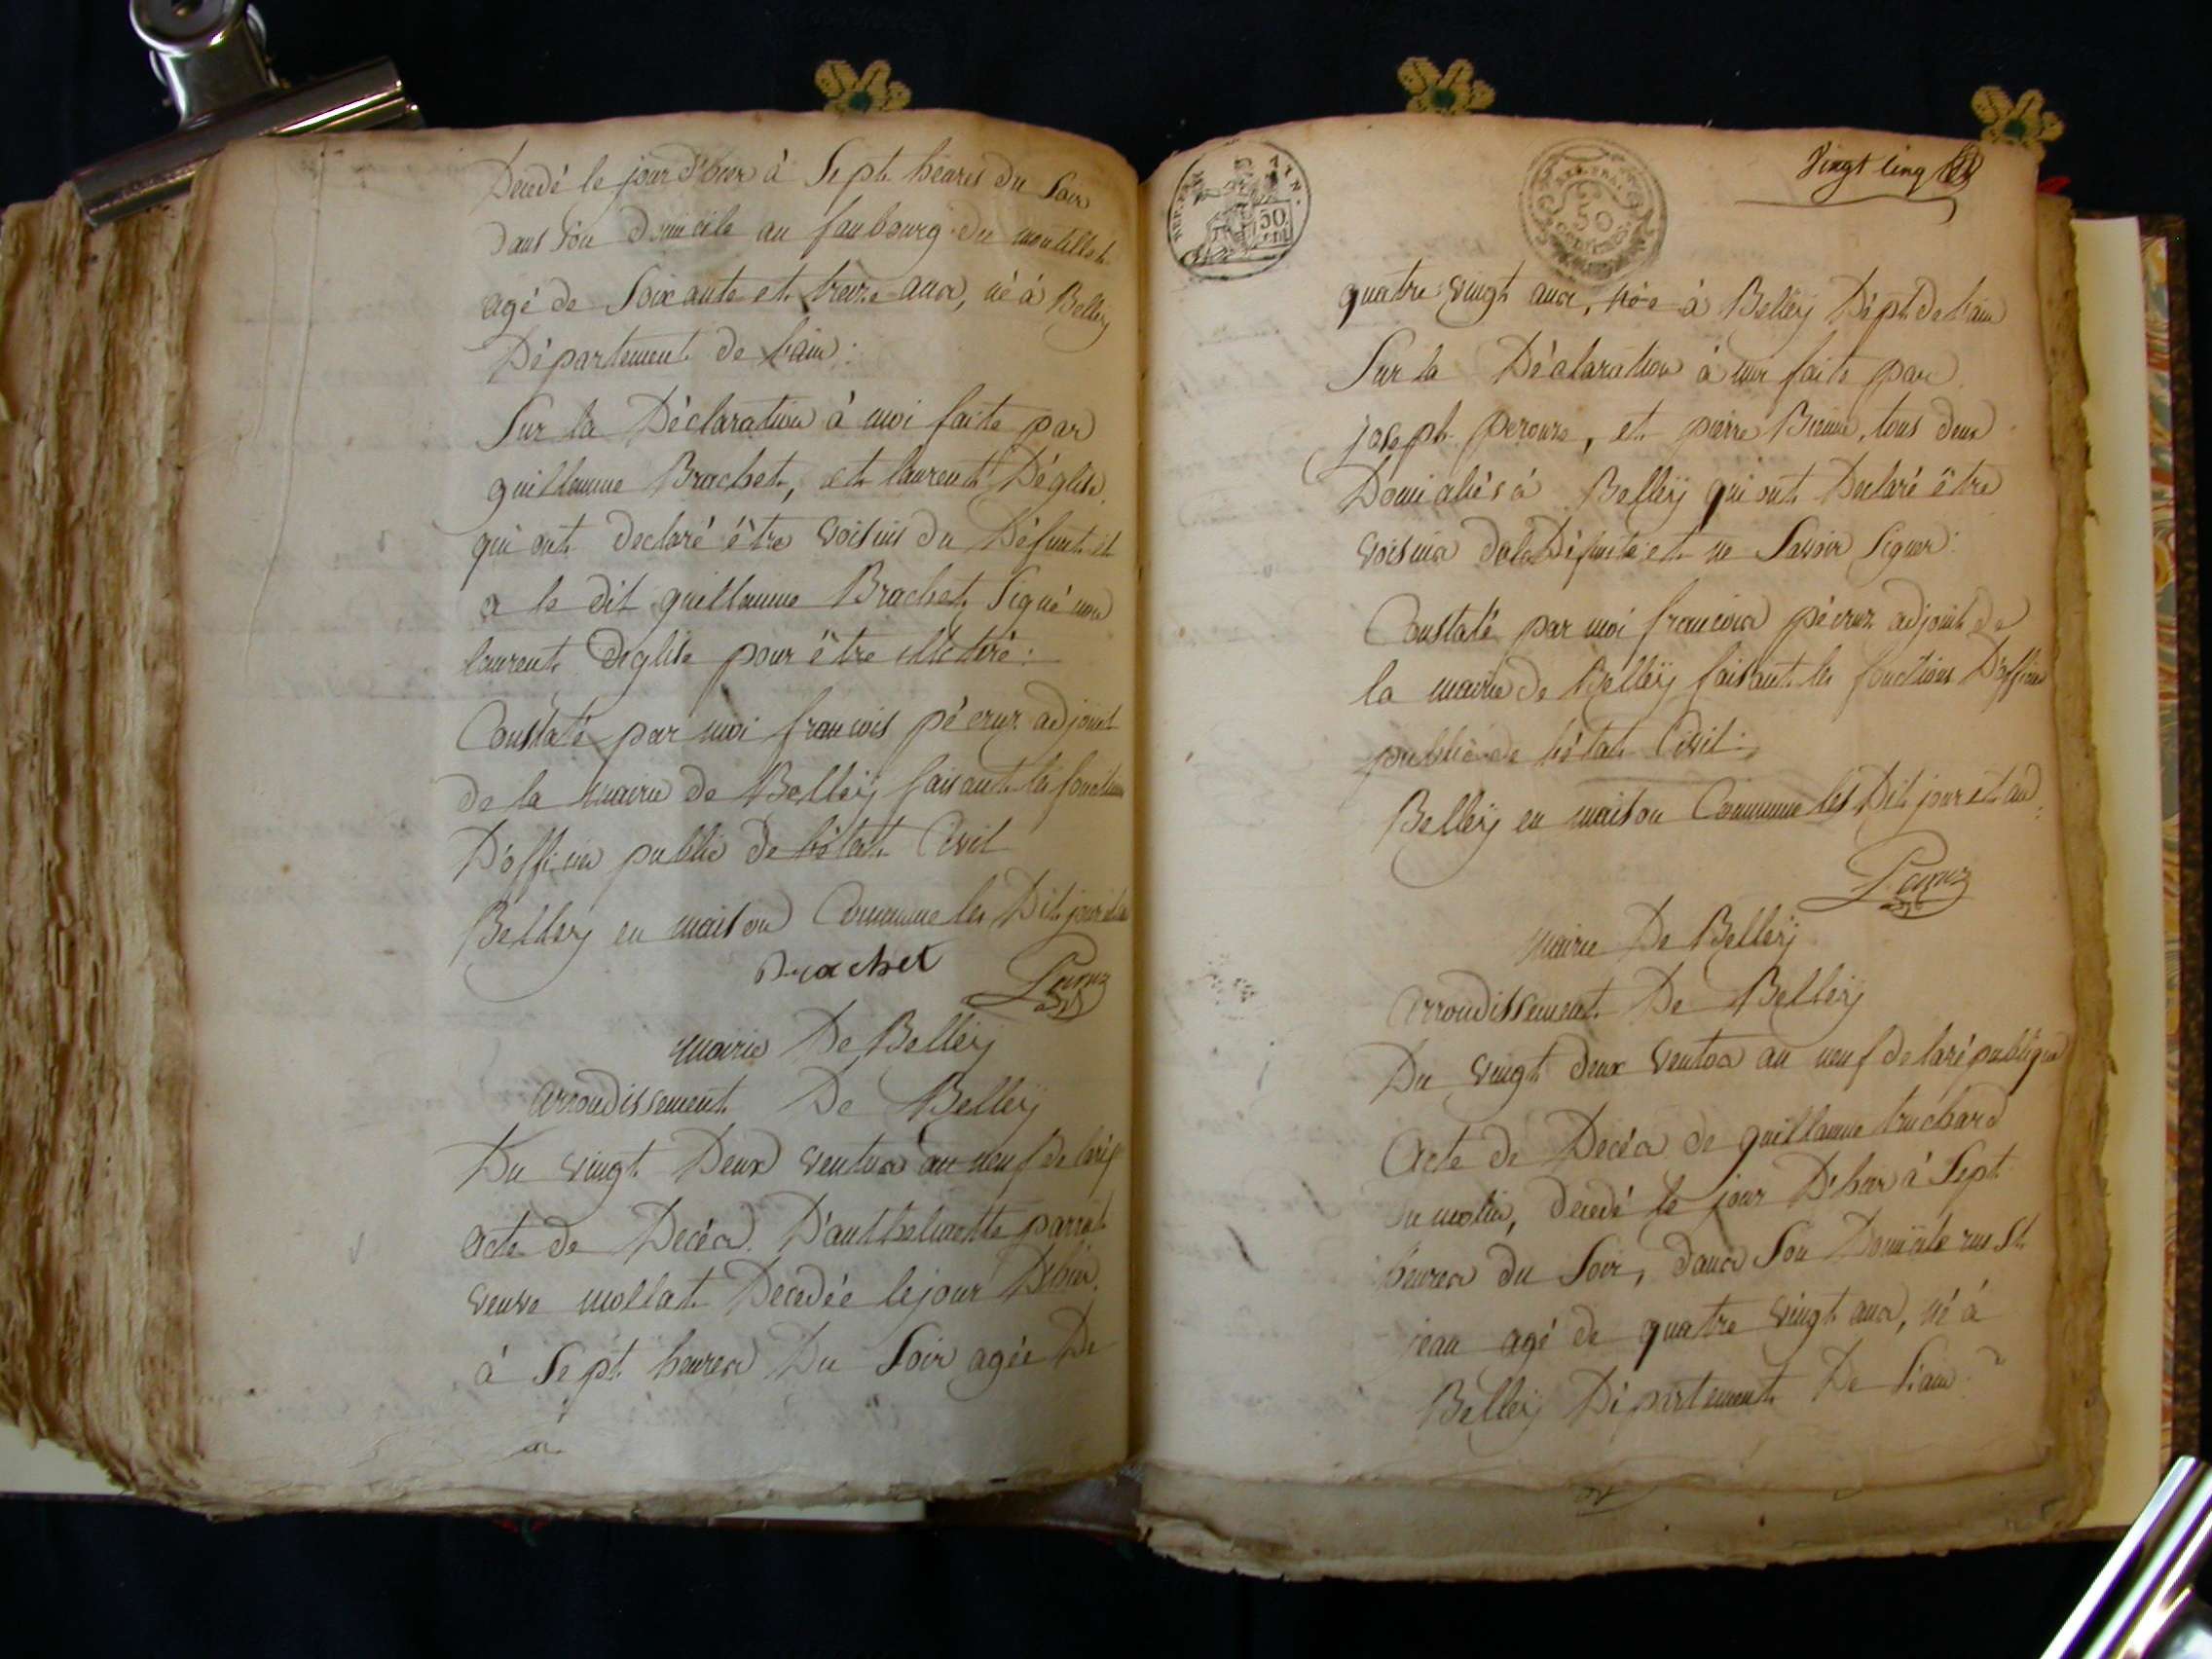 Decedé le jour d'hier à Sept heures du Soir
dans Son domicile au faubourg du
agé de Soixante et treize ans, né à Belleÿ
Département de l'ain:
Sur la Déclaration à moi faite par
guillaume Brachet, et laurent Déglise
qui ont declaré être voisins du Défunt et
a le dit guillaume Brachet Signé non
laurent deglise pour être illetéré:
Constaté par moi francois péernz adjoint
de la mairie de Belleÿ faisant les fonctions
D'officier public de l'état Civil
Belleÿ en maison Commune les Dit jour et an
Brachet
mairie De Belleÿ
arrondissement De Belleÿ
Du vingt Deux ventos an neuf de la rép
acte de Decés D'anthelmette parrat
veuve mollat Decedée le jour D'hier
à Sept heures Du Soir agée De
REP. FRA. AIN. 50 cent.
REP. FRA. 50 CENTIMES.
Vingt Cinq
quatre vingt ans, née à Belleÿ Dépt. De l'ain
Sur la Déclaration à moi faite par
joseph perouse, et pierre, tous deux
Domiciliés à Belleÿ qui ont Declaré être
voisins de la Défunte et ne Savoir Signer:
Constaté par moi francois péernz adjoint de
la mairie de Belleÿ faisant les fonctions D'officier
public de l'état Civil:
Belleÿ en maison Commune les Dit jour et an
mairie De Belleÿ
arrondissement De Belleÿ
Du vingt deux ventos an neuf de la république
Acte de Decés de guillaume truchard
du molin, decedé le jour D'hier à Sept
heures du Soir, dans Son Domicile rue St.
jean agé de quatre vingt ans, né à
Belleÿ Département De l'ain